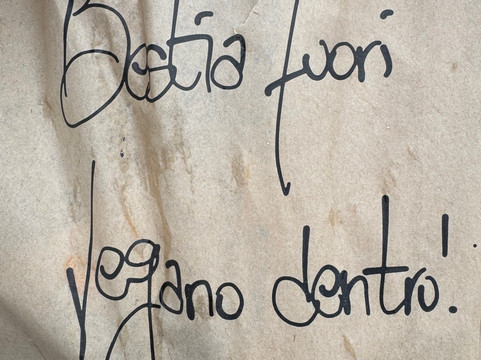 Bestia fuori
Vegano dentro!